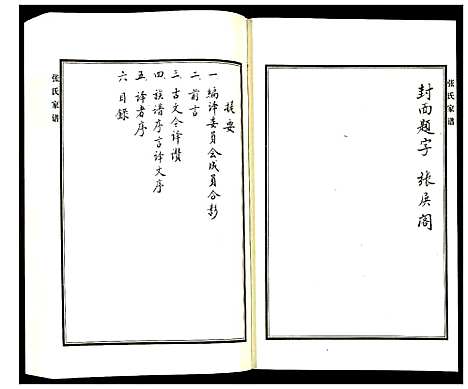 张氏家谱
封面题字 张侯阁
提要
一 编译委员会成员合影
二 前言
三 古文今译讚
四 族谱序言译文序
五 译者序
六 目录
张氏家谱